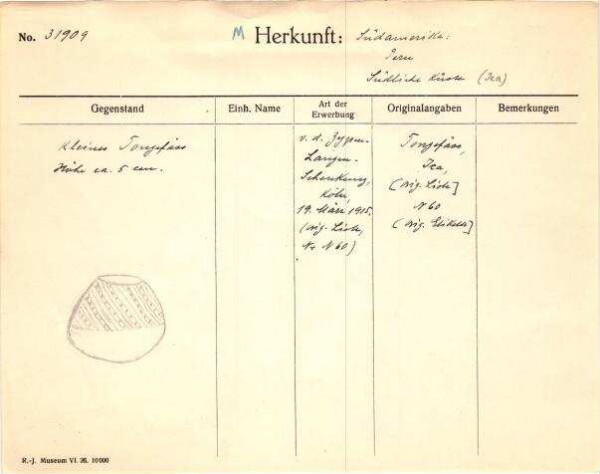 No. 31909
M Herkunft: Südamerika:
Peru
Südliche Küste (Ica)
Gegenstand
Einh. Name
Art der
Erwerbung
Originalangaben
Bemerkungen
Kleines Tongefäss
Höhe ca. 5 cm.
v. d. Zypen-
Langen-
Schenkung,
Köln,
19. März 1915.
(orig. Liste,
Nr N 60)
Tongefäss,
Ica,
(orig. Liste]
N 60
(orig. Etikette]
R.-J. Museum VI. 26. 10000